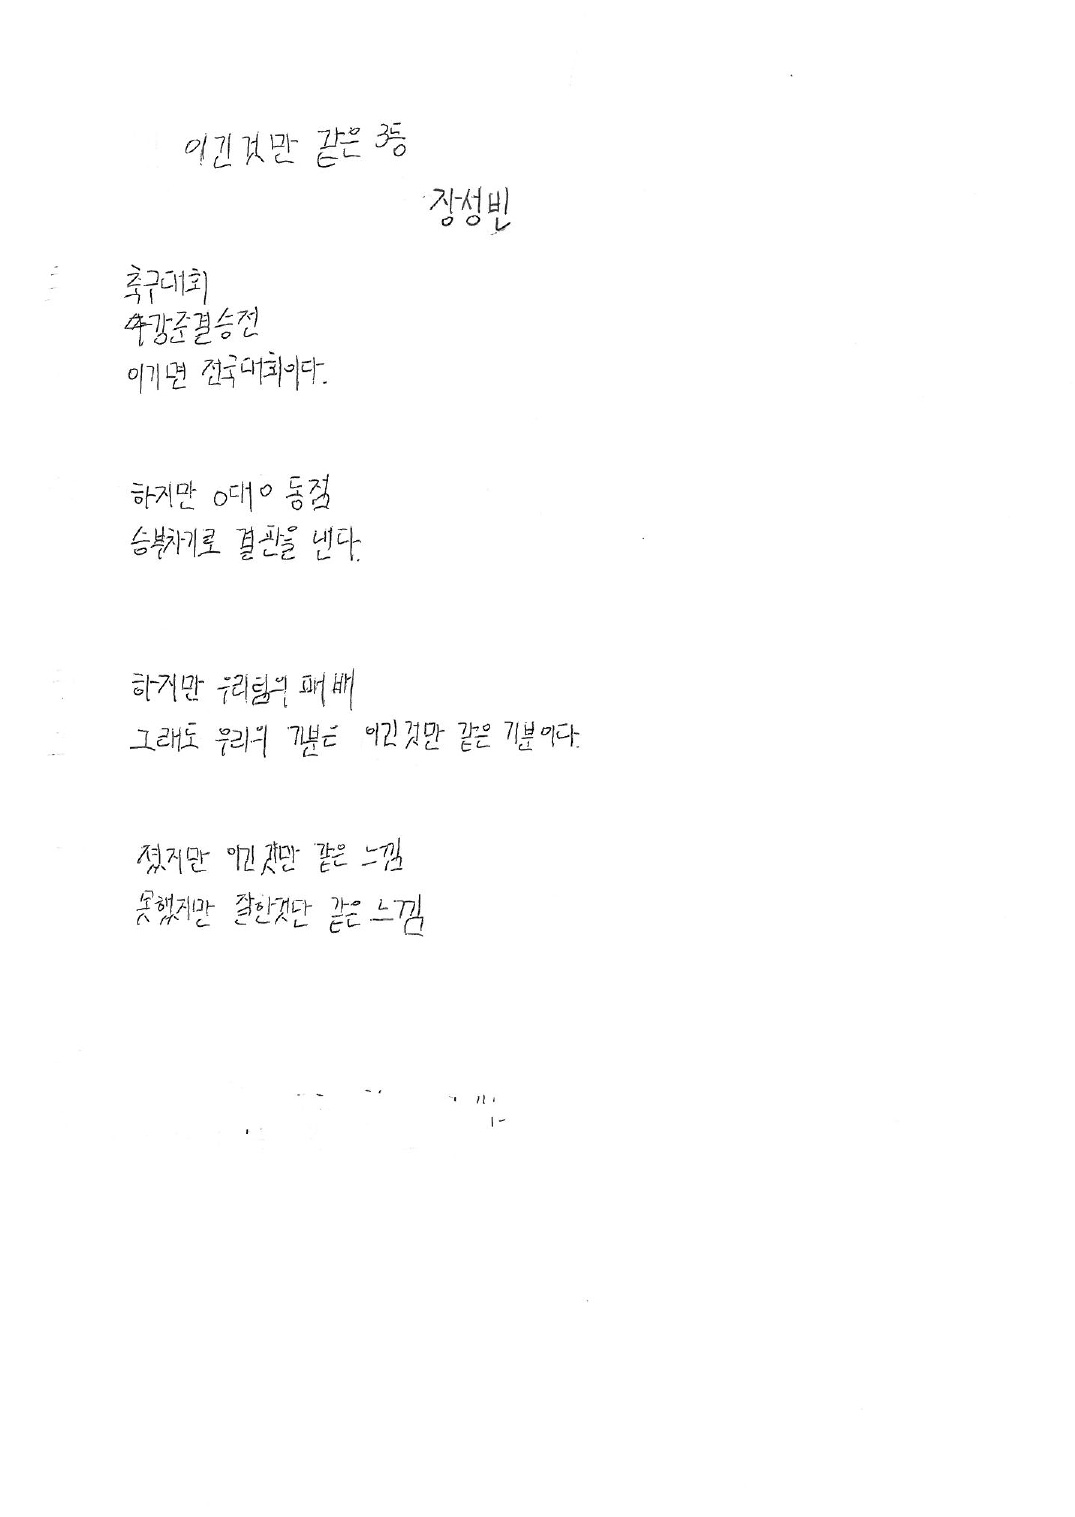 이긴것만 같은 3등
장성빈
축구대회
4강준결승전
이기면 전국대회이다.
하지만 0대0 동점
승부차기로 결판을 낸다.
하지만 우리팀의 패배
그래도 우리의 기분은 이긴것만 같은 기분이다.
졌지만 이긴것만 같은 느낌
못했지만 잘한것만 같은 느낌